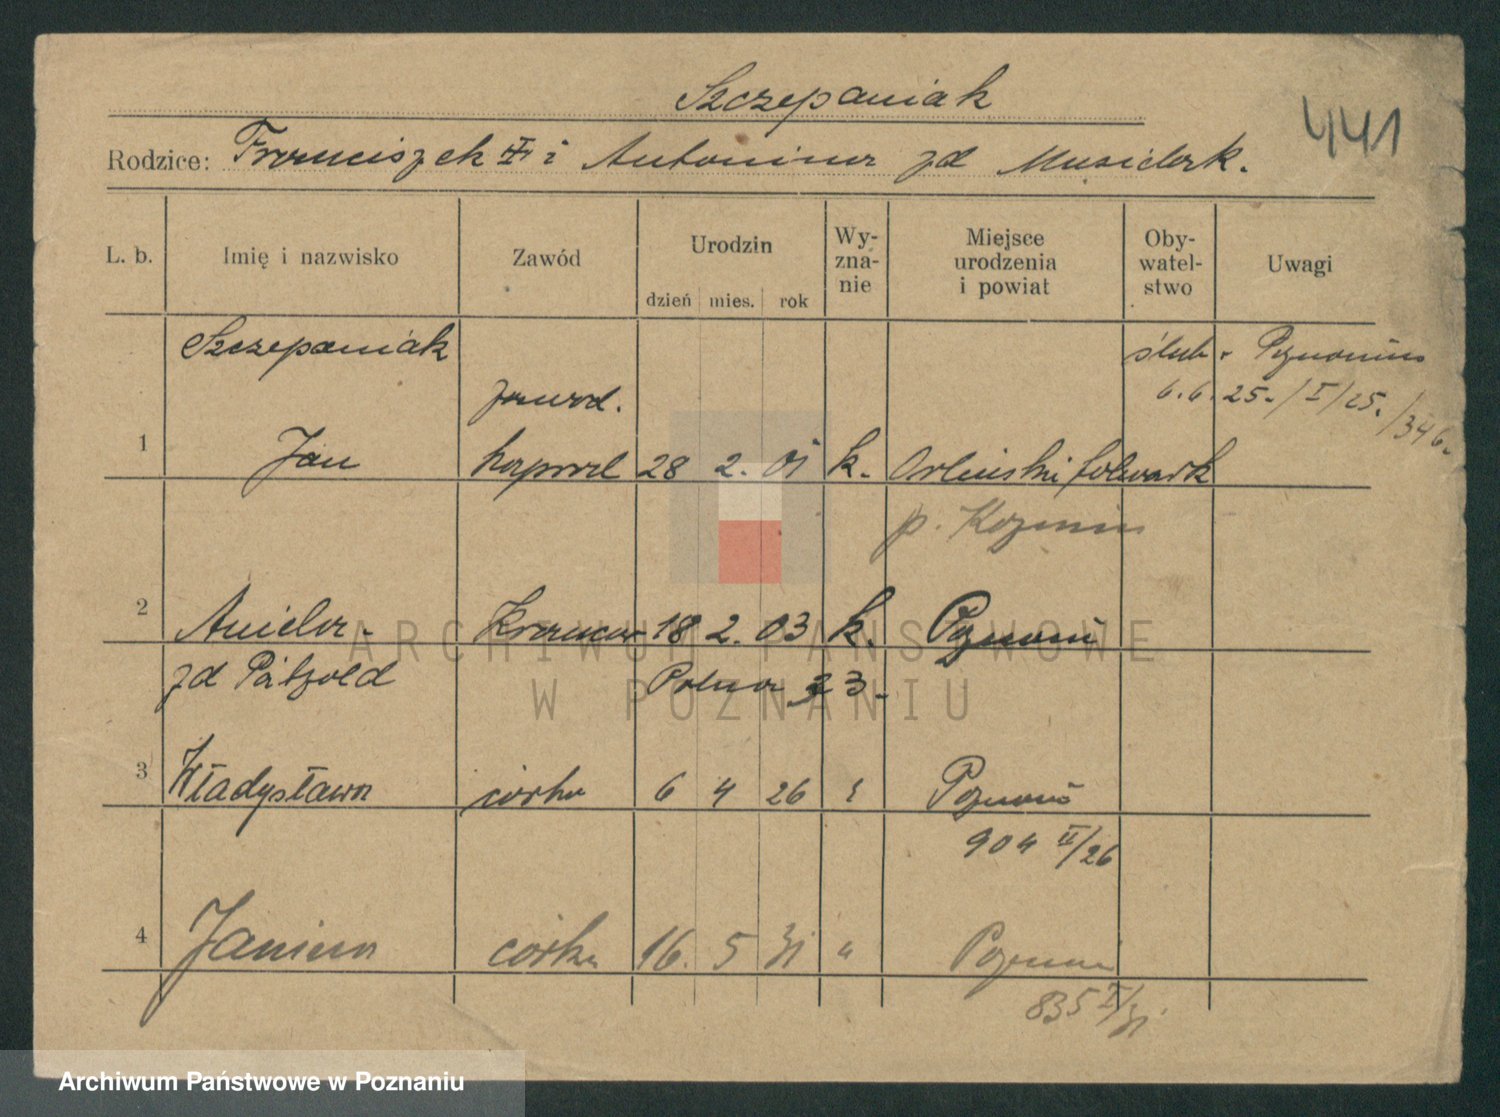 Szczepaniak
441
Rodzice: Franciszek i Antonina zd Musielak.
L. b. Imię i nazwisko Zawód Urodzin dzień mies. rok Wy-zna-nie Miejsce urodzenia i powiat Oby-watel-stwo Uwagi
Szczepaniak ślub Poznań
zawod. 6.6.25. /I/25./346.
1 Jan kaprol 28 2. 01 k. Orliński folwark
p. Kozmin
2 Aniela Krawcowa 18 2. 03 k. Poznań
zd Pätzold Polna 33
3 Władysława córka 6 4 26 Poznań
904 II/26
4 Janina córka 16. 5 31 " Poznań
835 I/31
ARCHIWUM PAŃSTWOWE
W POZNANIU
Archiwum Państwowe w Poznaniu